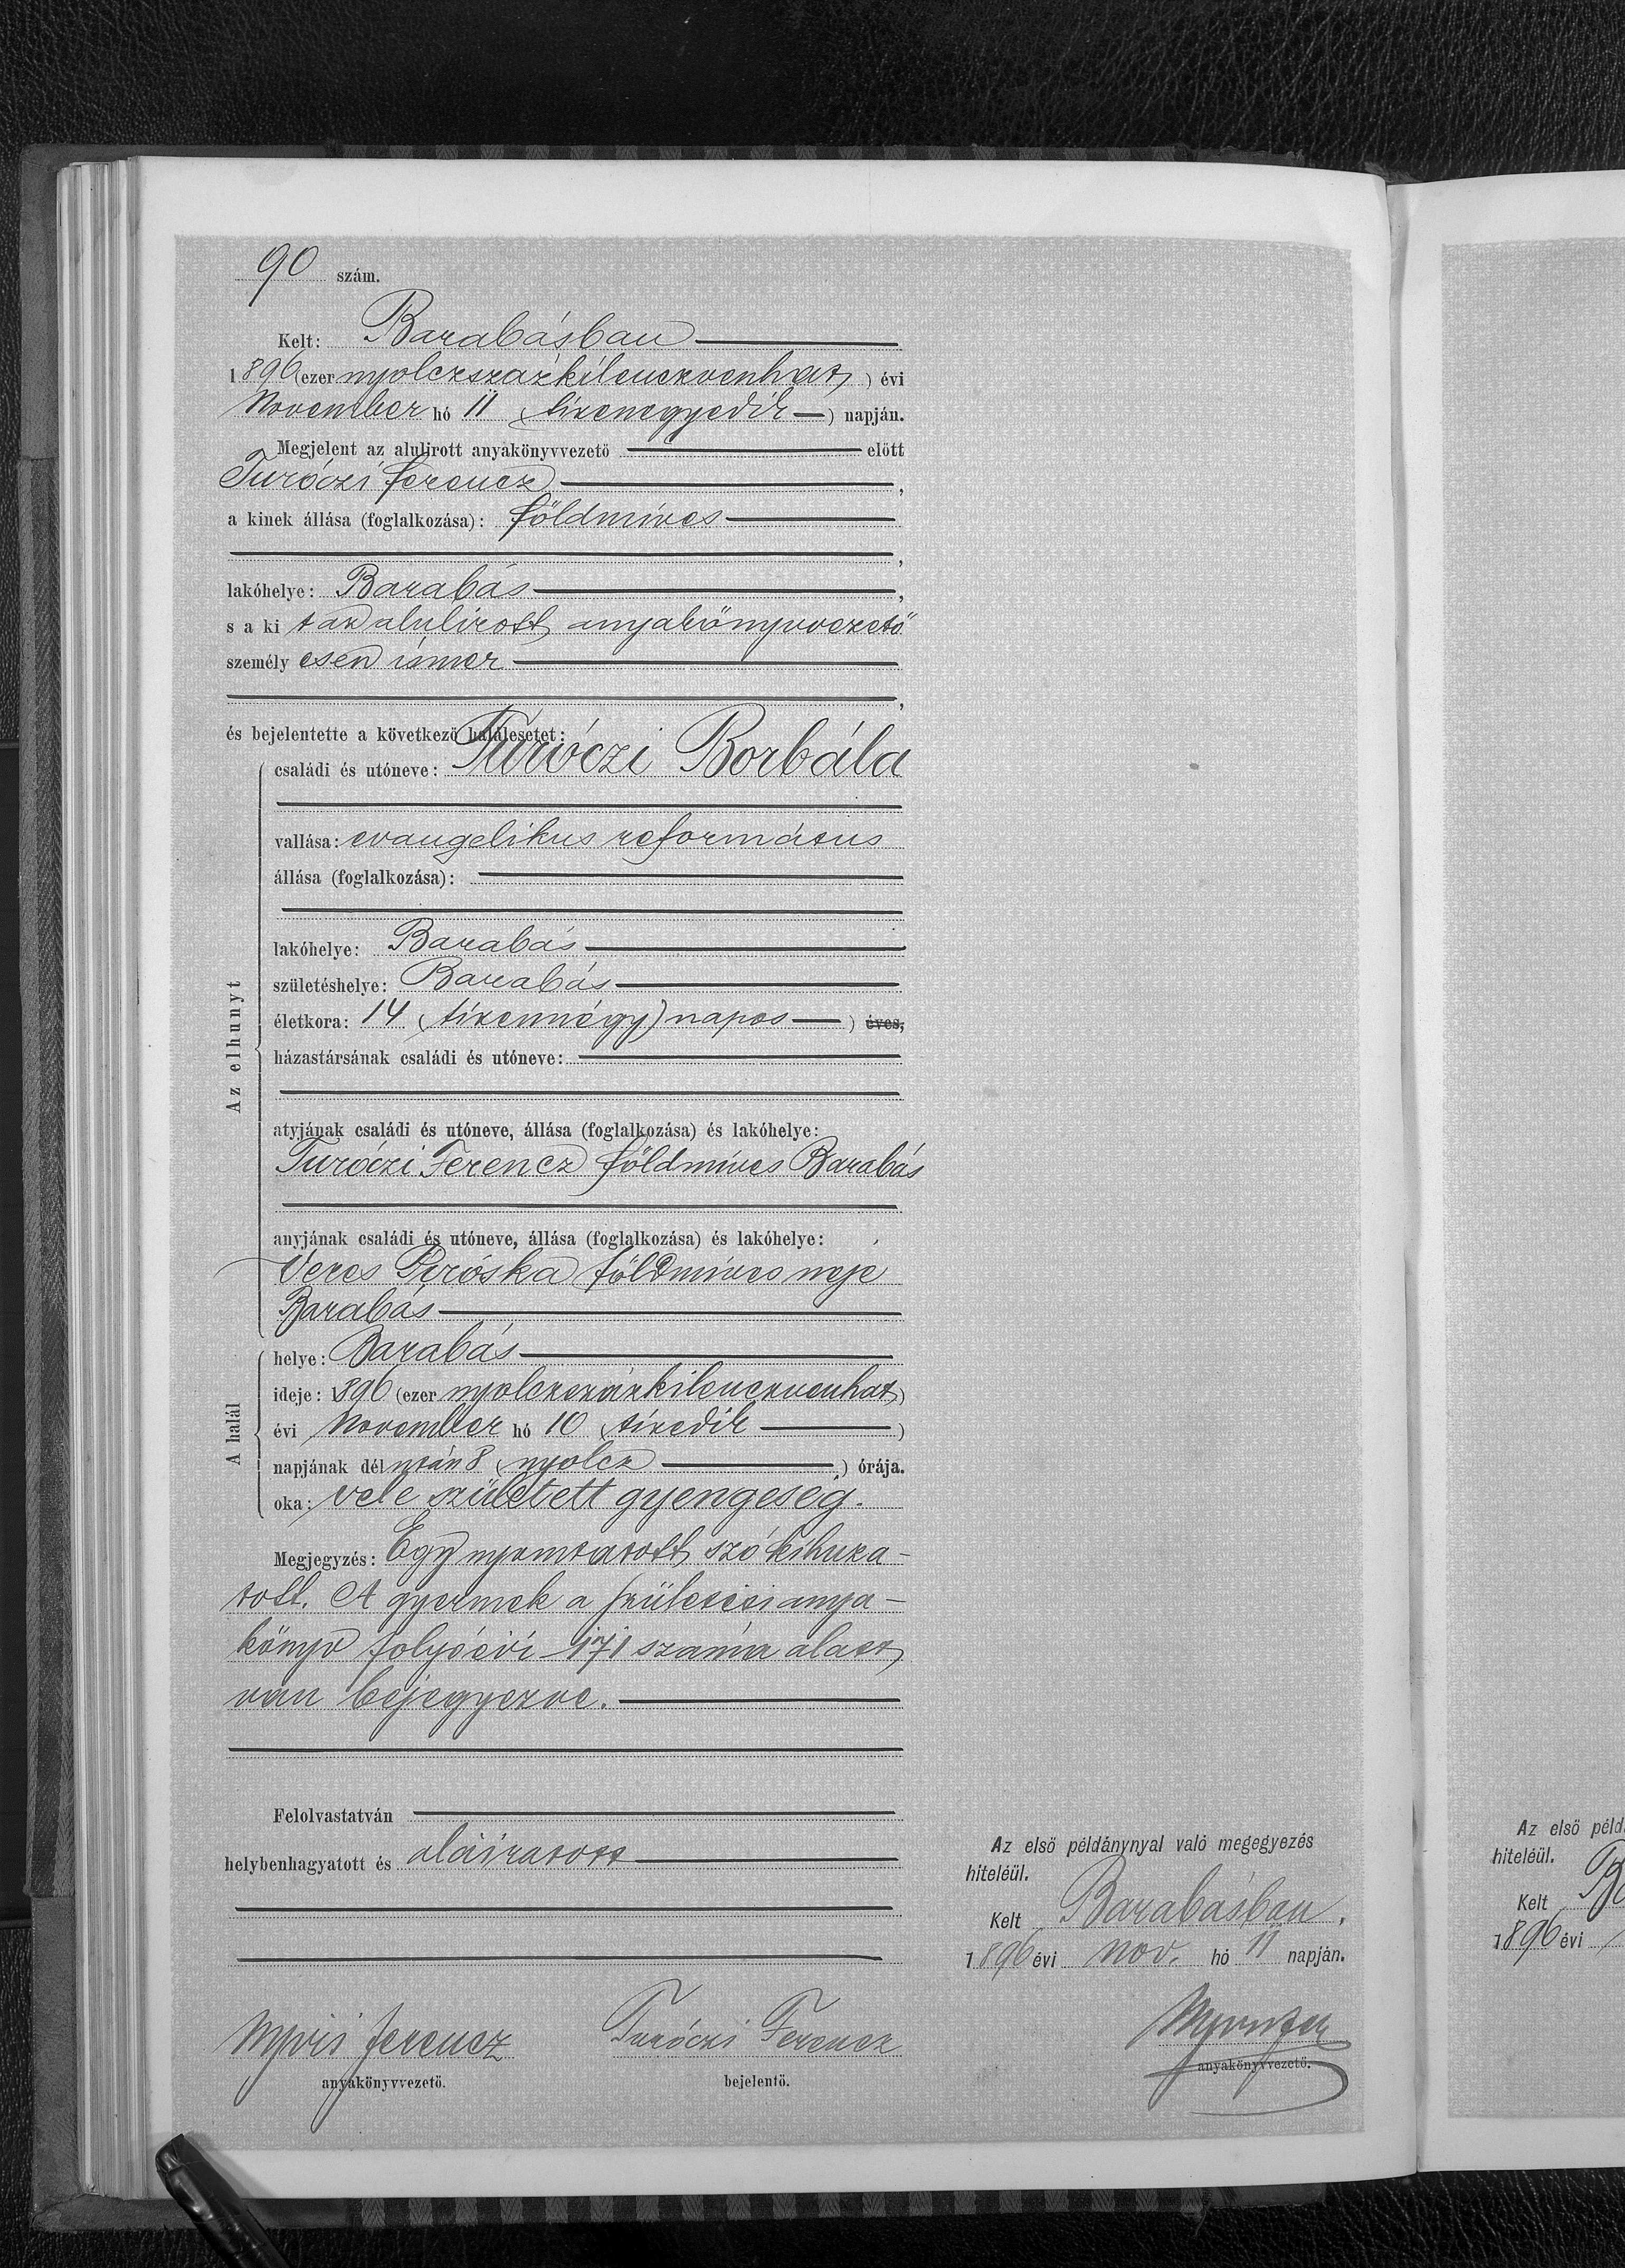 90 szám.
Kelt: Barabásban
1896 (ezer nyolczszázkilenczvenhat) évi
November hó 11 (tizenegyedik) napján.
Megjelent az alulirott anyakönyvvezető előtt
Turóczi Ferencz,
a kinek állása (foglalkozása): földmives
,
lakóhelye: Barabás,
s a ki t az alulirott anyakönyvvezető
személyesen ismer
,
és bejelentette a következő halálesetet:
Az elhunyt
családi és utóneve: Turóczi Borbála
vallása: evangelikus református
állása (foglalkozása):
lakóhelye: Barabás
születéshelye: Barabás
életkora: 14 (tizennégy) napos) éves,
házastársának családi és utóneve:
atyjának családi és utóneve, állása (foglalkozása) és lakóhelye:
Turóczi Ferencz földmives Barabás
anyjának családi és utóneve, állása (foglalkozása) és lakóhelye:
Veres Piróska földmives neje
Barabás
A halál
helye: Barabás
ideje: 1896 (ezer nyolczszázkilenczvenhat)
évi November hó 10 (tizedik)
napjának délután 8 (nyolcz) órája.
oka: vele született gyengeség.
Megjegyzés: Egy nyomtatott szó kihuza-
tott. A gyermek a születési anya-
könyv folyóévi 171 száma alatt
van bejegyezve.
Felolvastatván
helybenhagyatott és aláiratott
Nyiri Ferencz
anyakönyvvezető.
Turóczi Ferencz
bejelentő.
Az első példánynyal való megegyezés
hiteléül.
Kelt Barabásban,
1896 évi nov. hó 11 napján.
anyakönyvvezető.
Az első péld
hiteléül.
Kelt B
1896 évi